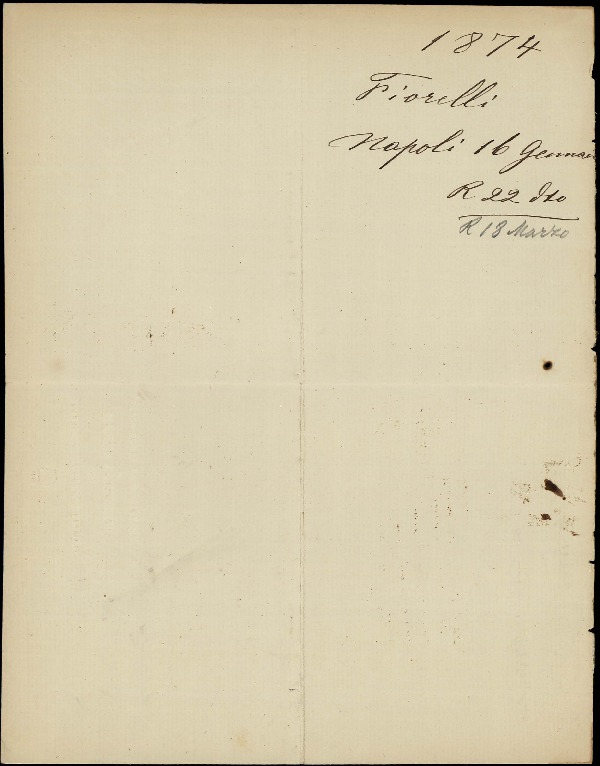 1874
Fiorelli
Napoli 16 Gennaio
R 22 dto
R 18 Marzo